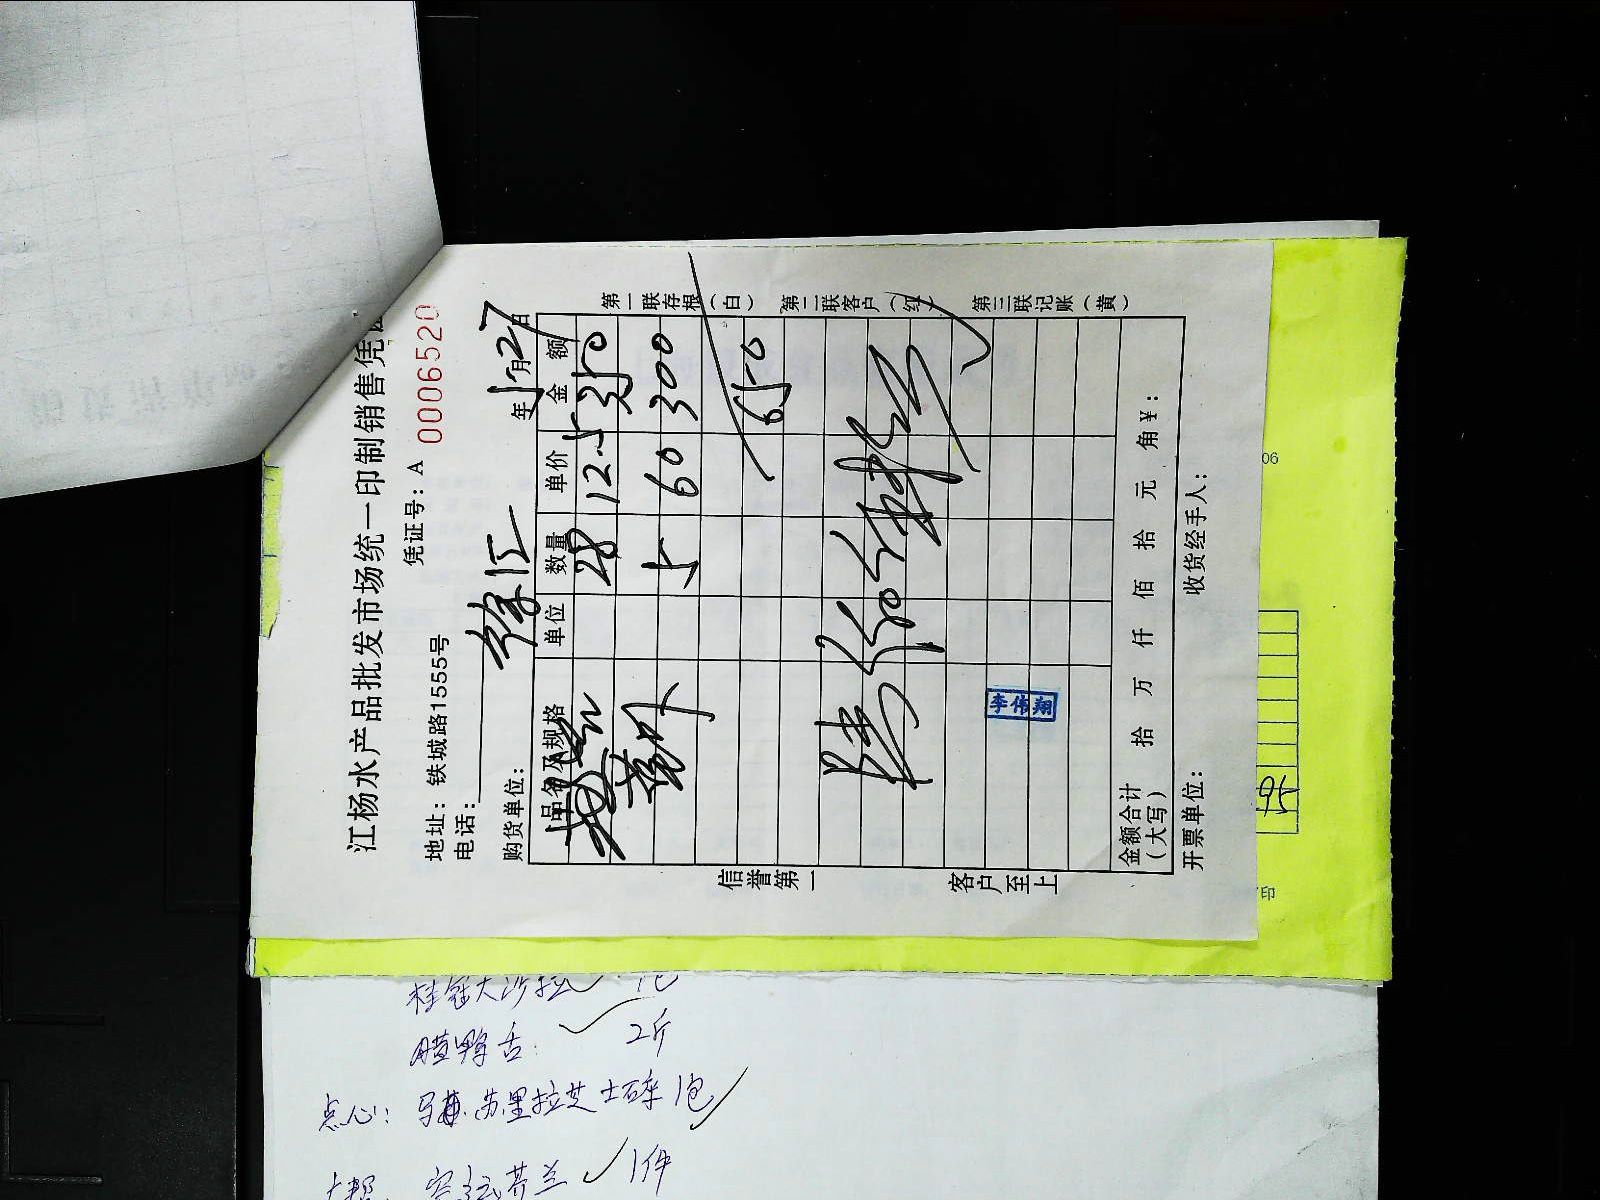 江杨水产品批发市场统一印制销售凭
凭证号：A 0006520
地址：铁城路1555号
电话：
购货单位： 徐汇 年5月27日
品名及规格 单位 数量 单价 金额
28 12.5 350
5 60 300
650
李伟翔
金额合计（大写） 拾 万 仟 佰 拾 元 角 ¥：
开票单位： 收货经手人：
第一联存根（白） 第二联客户（红） 第三联记账（黄）
信誉第一 客户至上
06
桂冠大沙拉 1包
腊鸭舌 2斤
点心： 马苏里拉芝士碎 1包
芥兰 1件